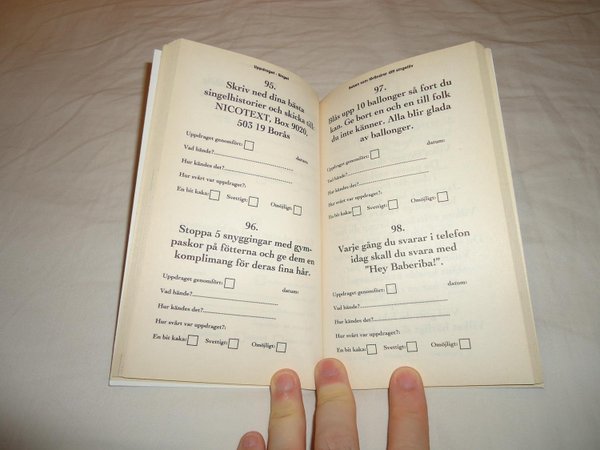 Uppdraget : Singel
95.
Skriv ned dina bästa
singelhistorier och skicka till:
NICOTEXT, Box 9020,
503 19 Borås
Uppdraget genomfört:
Vad hände? datum:
Hur kändes det?
Hur svårt var uppdraget?:
En bit kaka: Svettigt: Omöjligt:
96.
Stoppa 5 snyggingar med gym-
paskor på fötterna och ge dem en
komplimang för deras fina hår.
Uppdraget genomfört: datum:
Vad hände?
Hur kändes det?:
Hur svårt var uppdraget?:
En bit kaka: Svettigt: Omöjligt:
Boken som förändrar ditt singelliv
97.
Blås upp 10 ballonger så fort du
kan. Ge bort en och en till folk
du inte känner. Alla blir glada
av ballonger.
Uppdraget genomfört: datum:
Vad hände?
Hur kändes det?:
Hur svårt var uppdraget?:
En bit kaka: Svettigt: Omöjligt:
98.
Varje gång du svarar i telefon
idag skall du svara med
"Hey Baberiba!".
Uppdraget genomfört: datum:
Vad hände?
Hur kändes det?:
Hur svårt var uppdraget?:
En bit kaka: Svettigt: Omöjligt: